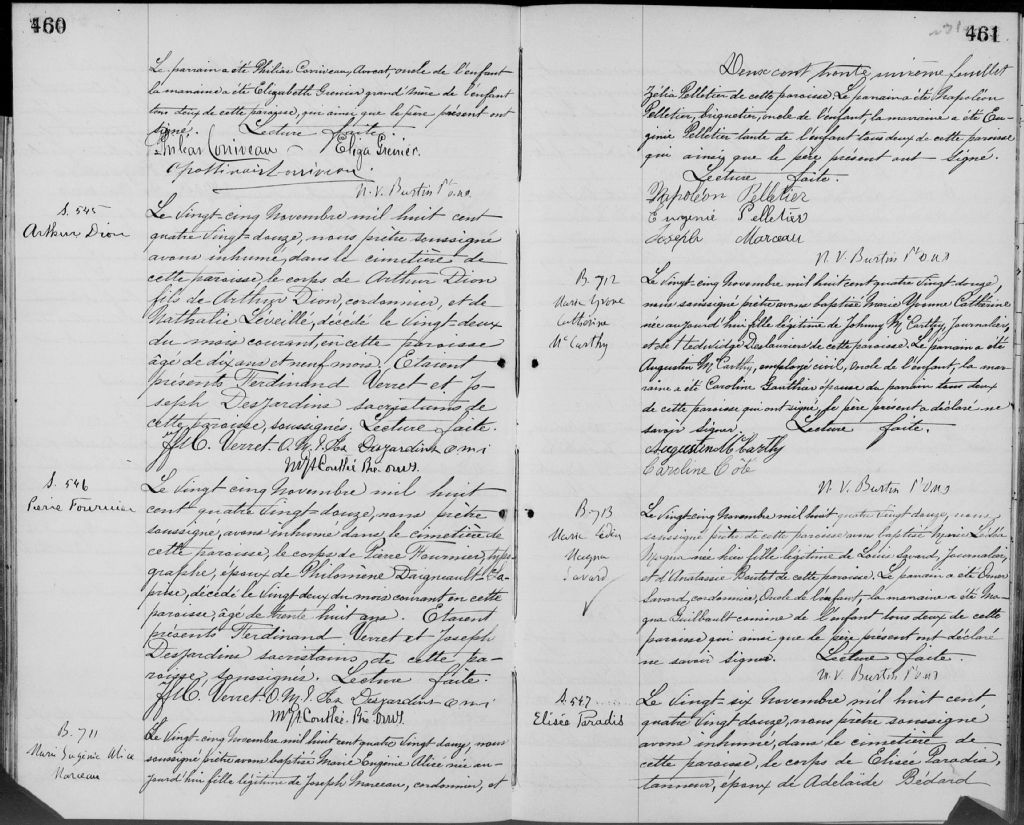 460
Le parrain a été Philias Corriveau, Avocat, oncle de l'enfant
la maraine a été Elizabeth Grenier grand'mère de l'enfant
tous deux de cette paroisse, qui ainsi que le père présent ont
signé. Lecture faite.
Philias Corriveau Eliza Grenier.
Apollinaire Corriveau
N. V. Burtin Ptre o.m.i.
S. 545
Arthur Dion
Le vingt-cinq Novembre mil huit cent
quatre vingt-douze, nous prêtre soussigné
avons inhumé, dans le cimetière de
cette paroisse, le corps de Arthur Dion
fils de Arthur Dion, cordonnier, et de
Nathalie Léveillé, décédé le vingt-deux
du mois courant, en cette paroisse
âgé de dix ans et neuf mois. Etaient
présents Ferdinand Verret et Jo-
seph Desjardins sacristains de
cette paroisse, soussignés. Lecture faite.
F. M. C. Verret. O.M.I. Jos Desjardins o m i
Ptre O.M.I.
S. 546
Pierre Fournier
Le vingt cinq Novembre mil huit
cent quatre vingt-douze, nous prêtre
soussigné, avons inhumé dans le cimetière de
cette paroisse, le corps de Pierre Fournier, typo-
graphe, époux de Philomène Daigneault-La-
prise, décédé le vingt deux du mois courant en cette
paroisse, âgé de trente huit ans. Etaient
présents Ferdinand Verret et Joseph
Desjardins sacristains, de cette pa-
roisse, soussignés. Lecture faite.
F. M. C. Verret. O.M.I. Jos Desjardins o m i
Ptre O.M.I.
B. 711
Marie Eugénie Alice
Marceau
Le vingt-cinq Novembre mil huit cent quatre vingt douze, nous
soussigné prêtre avons baptisé Marie Eugénie Alice née au-
jourd'hui fille légitime de Joseph Marceau, cordonnier, et
461
Deux cent trente unième feuillet
Zélia Pelletier de cette paroisse. Le parrain a été Napoléon
Pelletier, briquetier, oncle de l'enfant, la maraine a été Eu-
génie Pelletier tante de l'enfant tous deux de cette paroisse
qui ainsi que le père présent ont signé.
Lecture faite.
Napoléon Pelletier
Eugénie Pelletier
Joseph Marceau
N. V. Burtin Ptre O.M.I
B. 712
Marie Yvone
Catherine
Mc Carthy
Le vingt-cinq Novembre mil huit cent quatre vingt-douze,
nous soussigné prêtre avons baptisé Marie Yvonne Catherine
née aujourd'hui fille légitime de Johnny McCarthy, Journalier,
et de Hedwidge Deslauriers de cette paroisse. Le parrain a été
Augustin McCarthy, employé civil, oncle de l'enfant, la ma-
raine a été Caroline Gauthier épouse du parrain tous deux
de cette paroisse qui ont signé, le père présent a déclaré ne
savoir signer. Lecture faite.
Augustin McCarthy
Caroline Cote
N. V. Burtin Ptre O.M.I
B. 713
Marie Lédia
Magna
Savard
Le vingt-cinq Novembre mil huit quatre vingt douze, nous
soussigné prêtre de cette paroisse avons baptisé Marie Lédia
Magna née hier fille légitime de Louis Savard, Journalier,
et d'Anatassie Boutet de cette paroisse. Le parrain a été Omer
Savard, cordonnier, oncle de l'enfant, la maraine a été Ma-
gna Guilbault cousine de l'enfant tous deux de cette
paroisse qui ainsi que le père présent ont déclaré
ne savoir signer. Lecture faite.
N. V. Burtin Ptre O.M.I
S. 547
Elisée Paradis
Le vingt-six Novembre mil huit cent
quatre vingt douze, nous prêtre soussigné
avons inhumé, dans le cimetière de
cette paroisse, le corps de Elisée Paradis,
tanneur, époux de Adelaïde Bédard